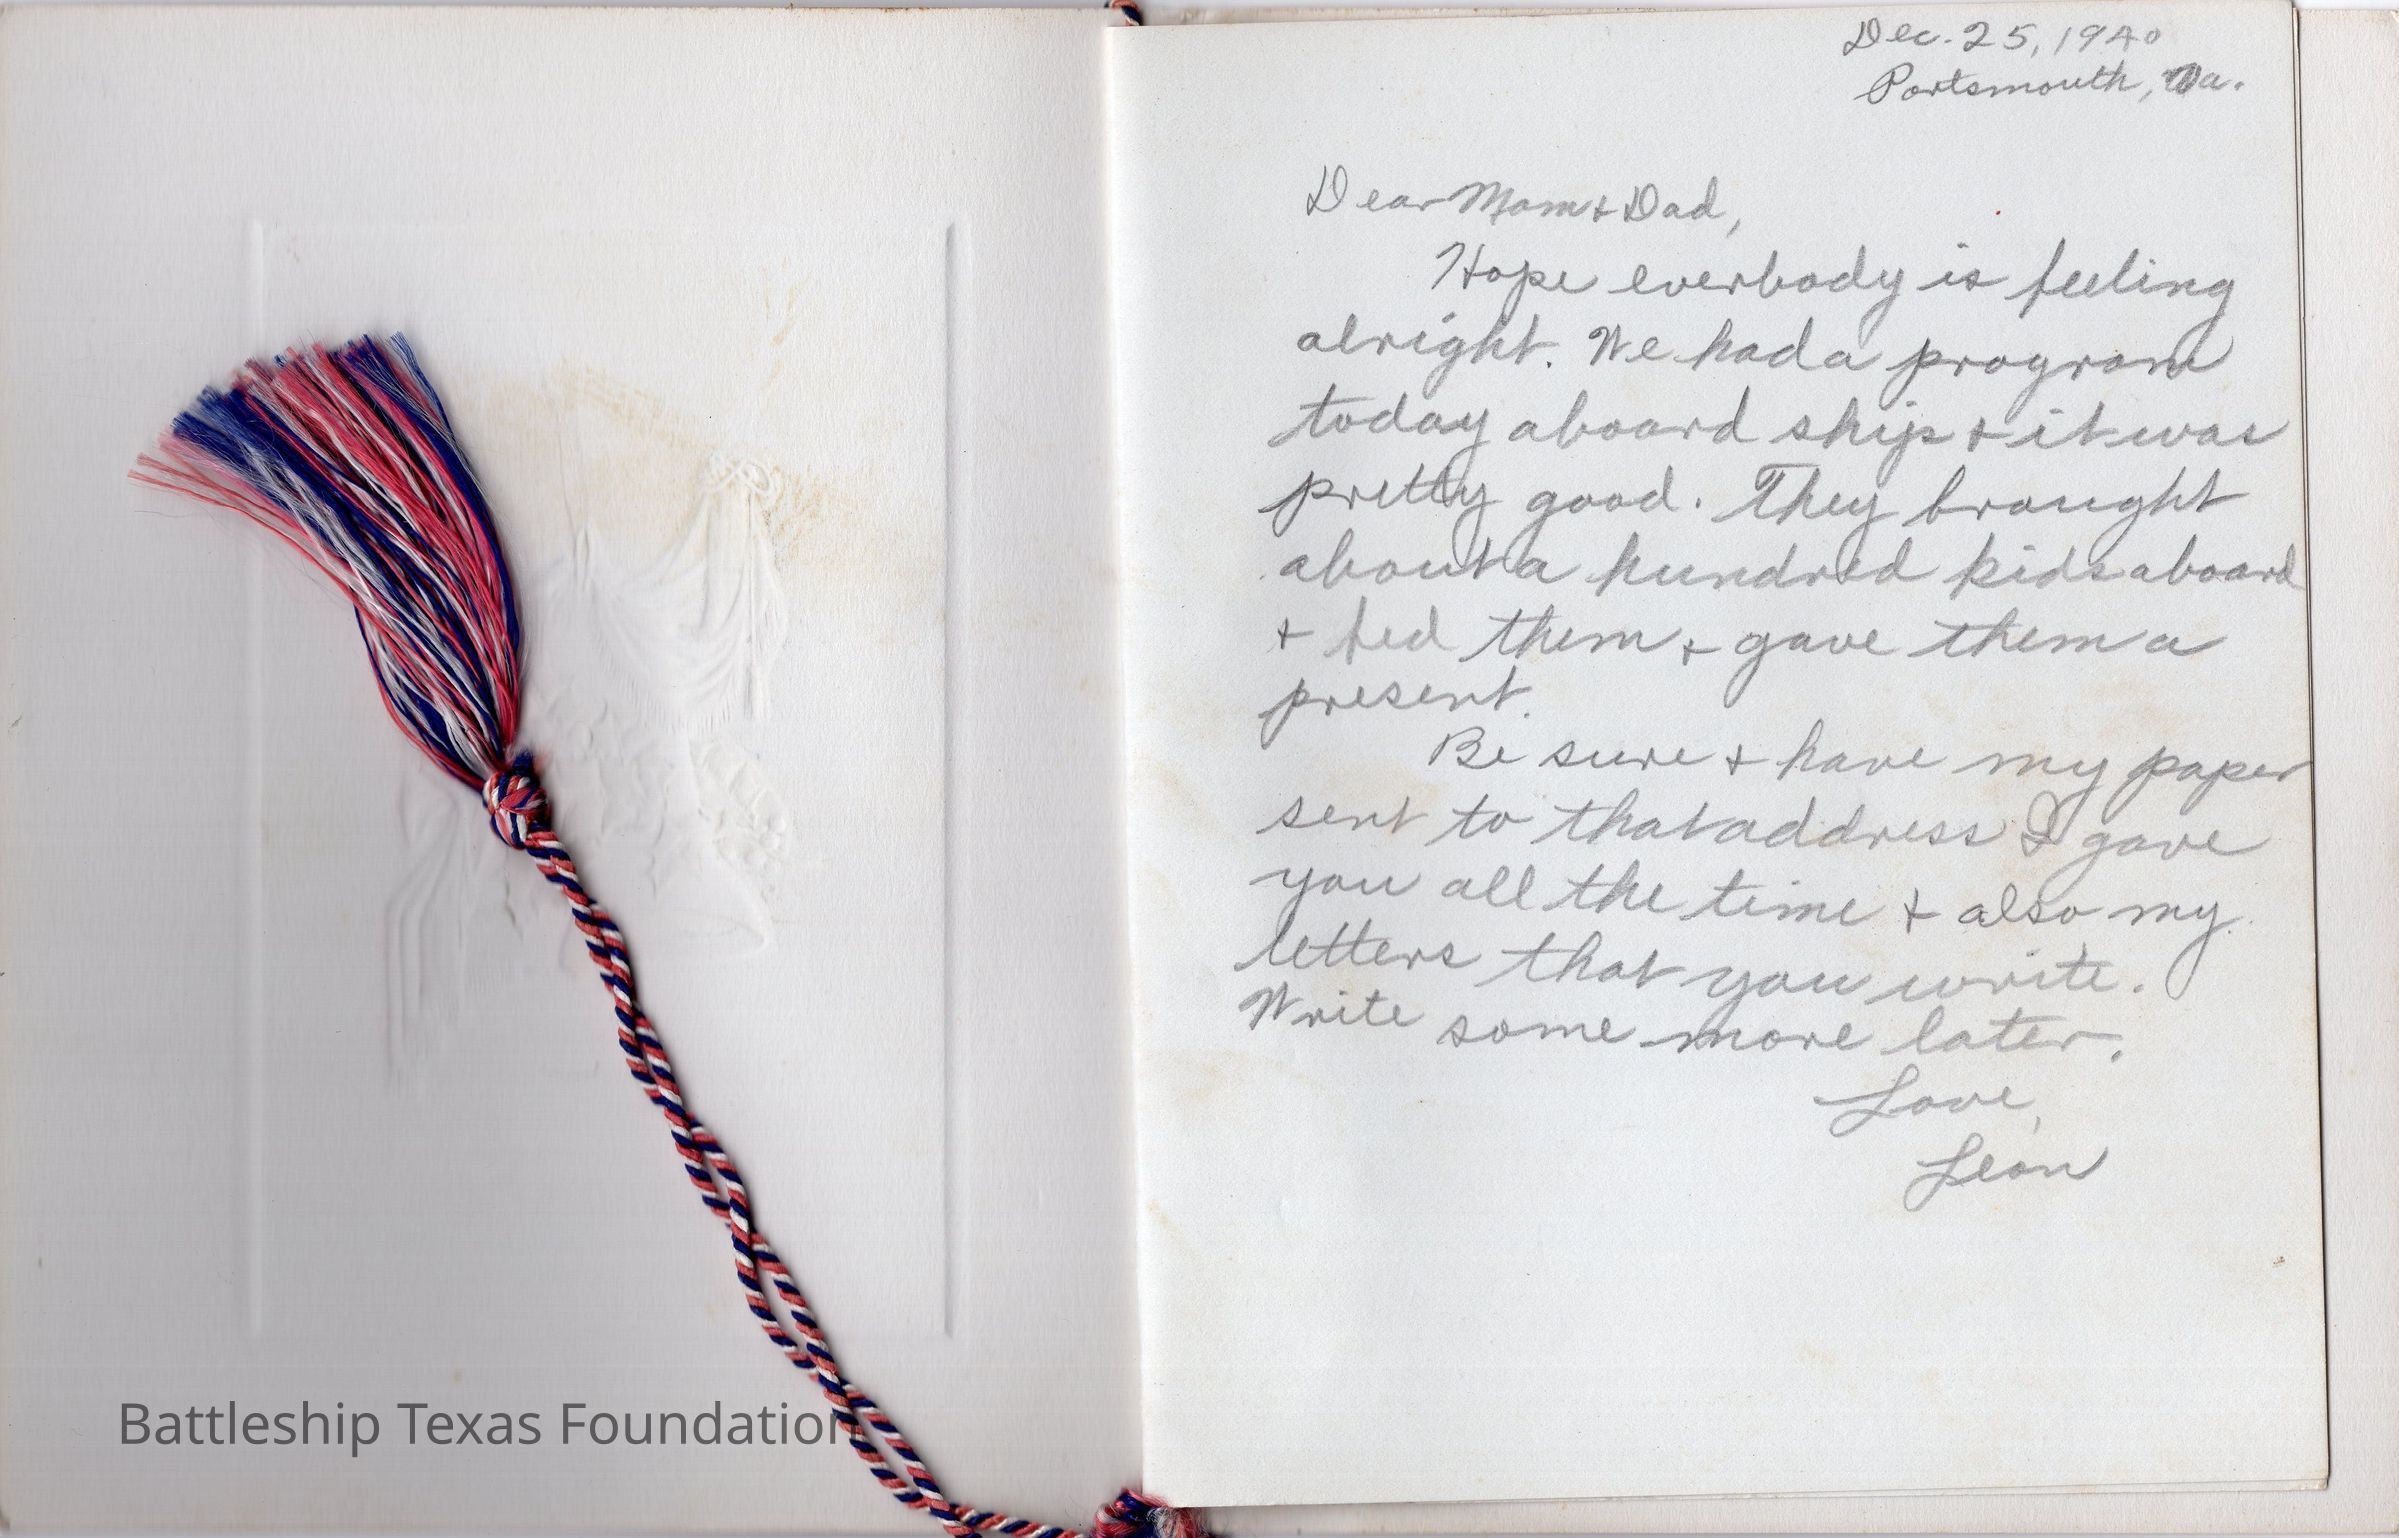 Dec. 25, 1940
Portsmouth, Va.
Dear Mom + Dad,
Hope everbody is feeling
alright. We had a program
today aboard ship + it was
pretty good. They brought
about a hundred kids aboard
+ fed them + gave them a
present.
Be sure + have my paper
sent to that address I gave
you all the time + also my
letters that you write.
Write some more later.
Love,
Leon
Battleship Texas Foundation